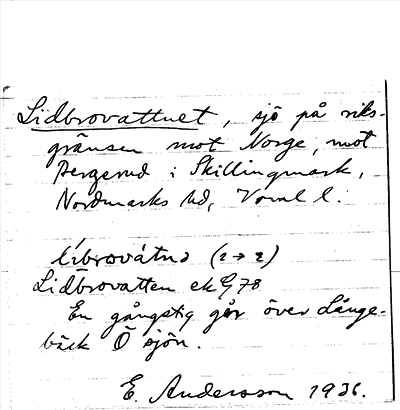 Lidbrovattnet, sjö på riks-
gränsen mot Norge, mot
i Skillingmark,
Nordmarks hd, l.
líbrovátnə (2→2)
Lidbrovatten ek G 78
En gångstig går över Långe-
bäck Ö sjön.
E. Andersson 1936.